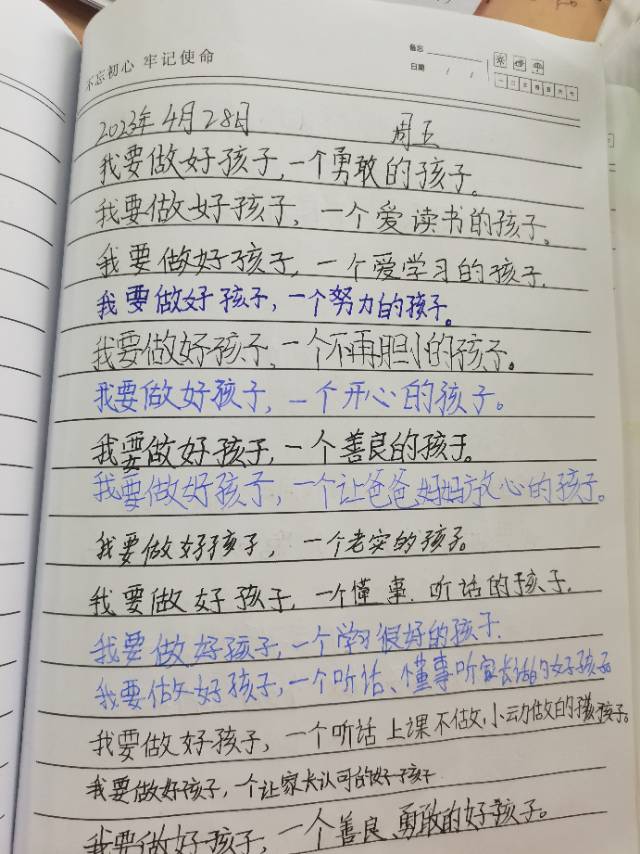 不忘初心 牢记使命
备忘
日期 / /
2023年4月28日 周五
我要做好孩子,一个勇敢的孩子。
我要做好孩子,一个爱读书的孩子。
我要做好孩子,一个爱学习的孩子.
我要做好孩子,一个努力的孩子。
我要做好孩子,一个不再胆小的孩子。
我要做好孩子,一个开心的孩子。
我要做好孩子,一个善良的孩子。
我要做好孩子,一个让爸爸妈妈放心的孩子。
我要做好孩子,一个老实的孩子。
我要做好孩子,一个懂事.听话的孩子.
我要做好孩子,一个学习很好的孩子.
我要做好孩子,一个听话、懂事听家长话的好孩子
我要做好孩子,一个听话上课不做小动做的孩子。
我要做好孩子,一个让家长认可的好孩子
我要做好孩子,一个善良、勇敢的好孩子。